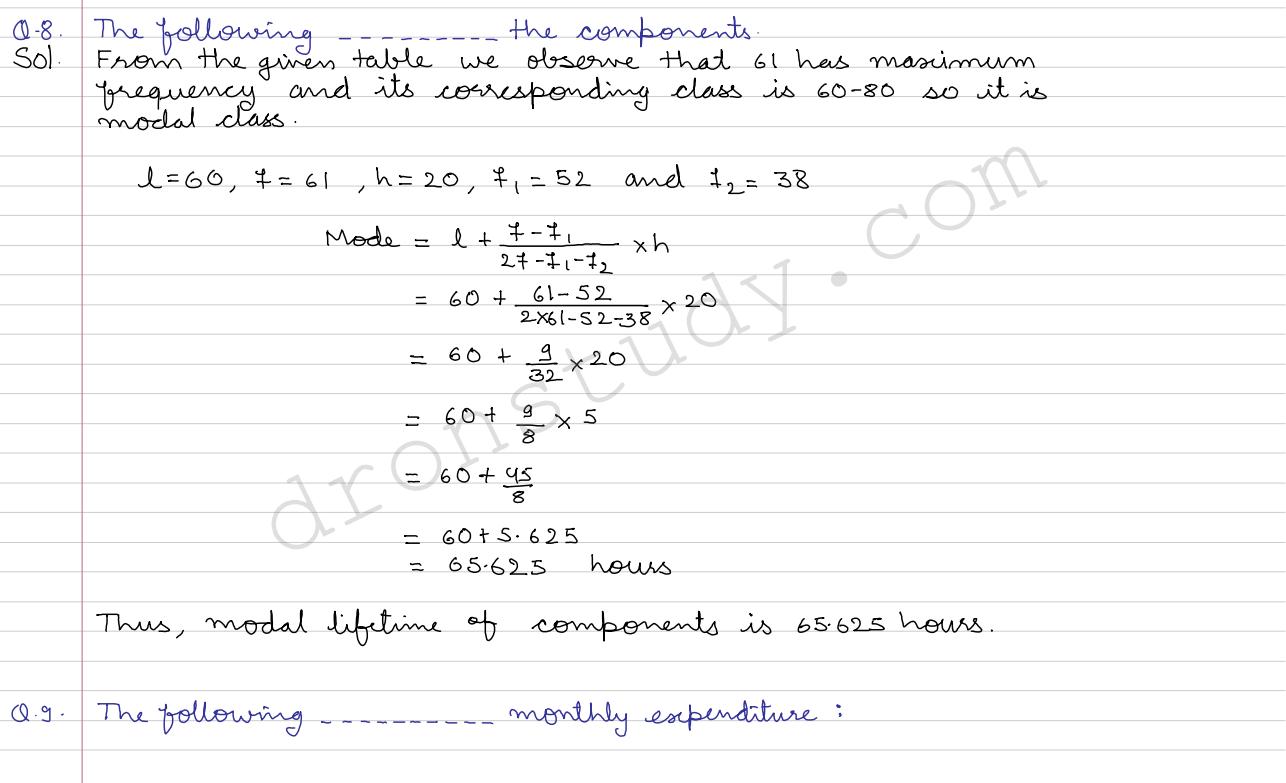 Q.8. The following --------- the components.
Sol. From the given table we observe that 61 has maximum
frequency and its corresponding class is 60-80 so it is
modal class.
l=60, f=61, h=20, f₁=52 and f₂=38
Mode = l + (f-f₁)/(2f-f₁-f₂) × h
= 60 + (61-52)/(2×61-52-38) × 20
= 60 + 9/32 × 20
= 60 + 9/8 × 5
= 60 + 45/8
= 60+5.625
= 65.625 hours
Thus, modal lifetime of components is 65.625 hours.
Q.9. The following ---------- monthly expenditure :
dronstudy.com